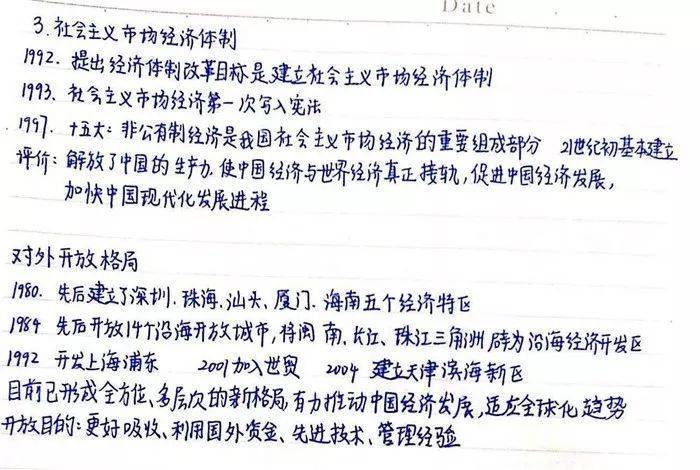 Date
3. 社会主义市场经济体制
1992. 提出经济体制改革目标是建立社会主义市场经济体制
1993. 社会主义市场经济第一次写入宪法
1997. 十五大: 非公有制经济是我国社会主义市场经济的重要组成部分 21世纪初基本建立
评价: 解放了中国的生产力, 使中国经济与世界经济真正接轨, 促进中国经济发展,
加快中国现代化发展进程
对外开放格局
1980. 先后建立了深圳. 珠海. 汕头、厦门. 海南五个经济特区
1984 先后开放14个沿海开放城市, 将闽 南、长江、珠江三角洲 辟为沿海经济开发区
1992 开发上海浦东 2001加入世贸 2004 建立天津滨海新区
目前已形成全方位、多层次的新格局, 有力推动中国经济发展, 适应全球化趋势
开放目的: 更好吸收、利用国外资金、先进技术、管理经验